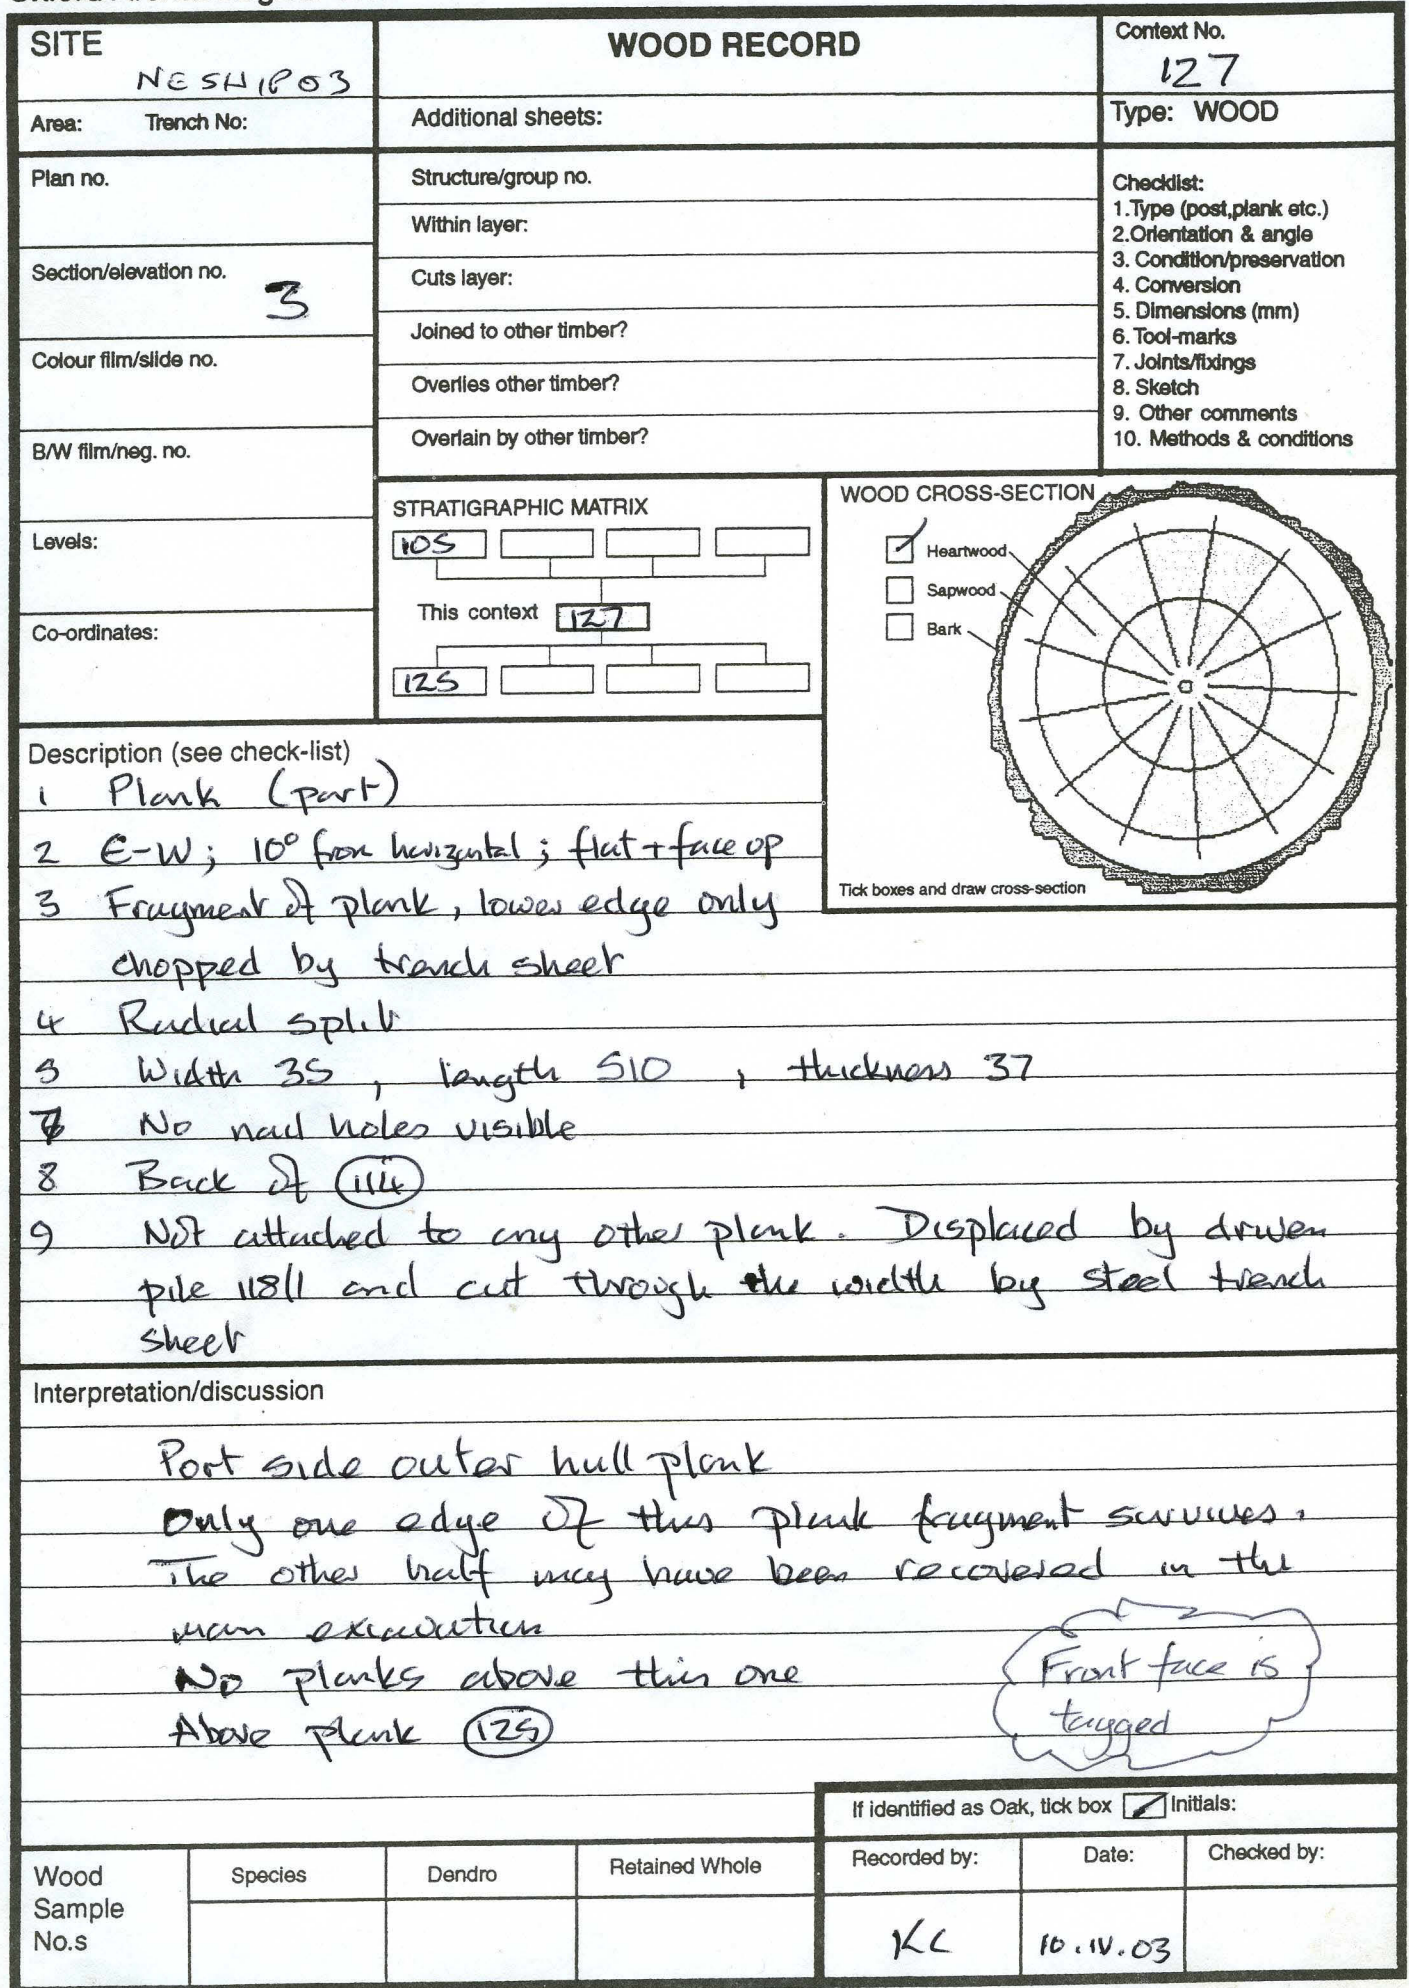 SITE
NESHIP03
WOOD RECORD
Context No.
127
Area: Trench No:
Additional sheets:
Type: WOOD
Plan no.
Structure/group no.
Within layer:
Section/elevation no.
3
Cuts layer:
Joined to other timber?
Colour film/slide no.
Overlies other timber?
B/W film/neg. no.
Overlain by other timber?
Checklist:
1.Type (post,plank etc.)
2.Orientation & angle
3. Condition/preservation
4. Conversion
5. Dimensions (mm)
6. Tool-marks
7. Joints/fixings
8. Sketch
9. Other comments
10. Methods & conditions
Levels:
Co-ordinates:
STRATIGRAPHIC MATRIX
105
This context 127
125
WOOD CROSS-SECTION
Heartwood
Sapwood
Bark
Tick boxes and draw cross-section
Description (see check-list)
1 Plank (part)
2 E-W; 10° from horizontal; flat + face up
3 Fragment of plank, lower edge only
chopped by trench sheet
4 Radial split
5 Width 35, length 510, thickness 37
7 No nail holes visible
8 Back of 114
9 Not attached to any other plank. Displaced by driven
pile 118/1 and cut through the width by steel trench
sheet
Interpretation/discussion
Port side outer hull plank
Only one edge of this plank fragment survives.
The other half may have been recovered in the
main excavation
No planks above this one
Above plank 125
Front face is
tagged
If identified as Oak, tick box Initials:
Wood
Sample
No.s
Species
Dendro
Retained Whole
Recorded by:
KC
Date:
10.IV.03
Checked by: